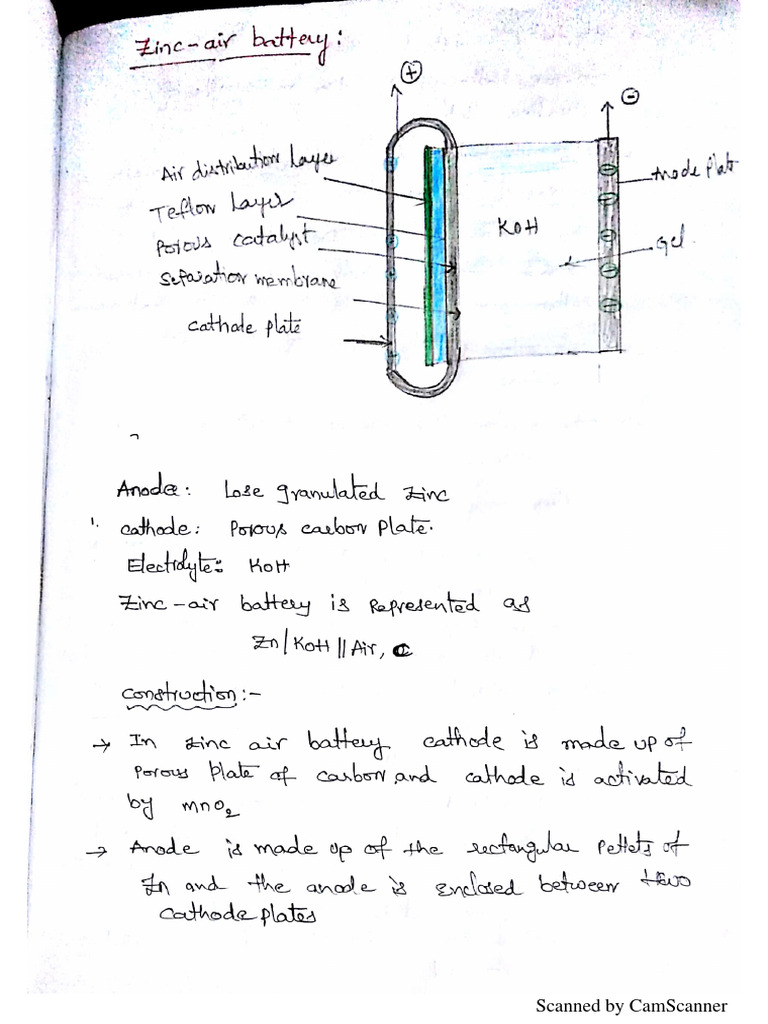 Zinc-air battery:
+
-
Air distribution Layer
Teflow Layer
Porous catalyst
Separation membrane
cathode plate
KOH
Anode plate
gel
Anode: Lose granulated zinc
1. cathode: Porous carbon plate.
Electrolyte: KOH
Zinc-air battery is Represented as
Zn/KOH || Air, C
construction:-
→ In zinc air battery cathode is made up of
porous plate of carbon, and cathode is activated
by mnO2
→ Anode is made up of the rectangular pellets of
Zn and the anode is enclosed between two
cathode plates
Scanned by CamScanner